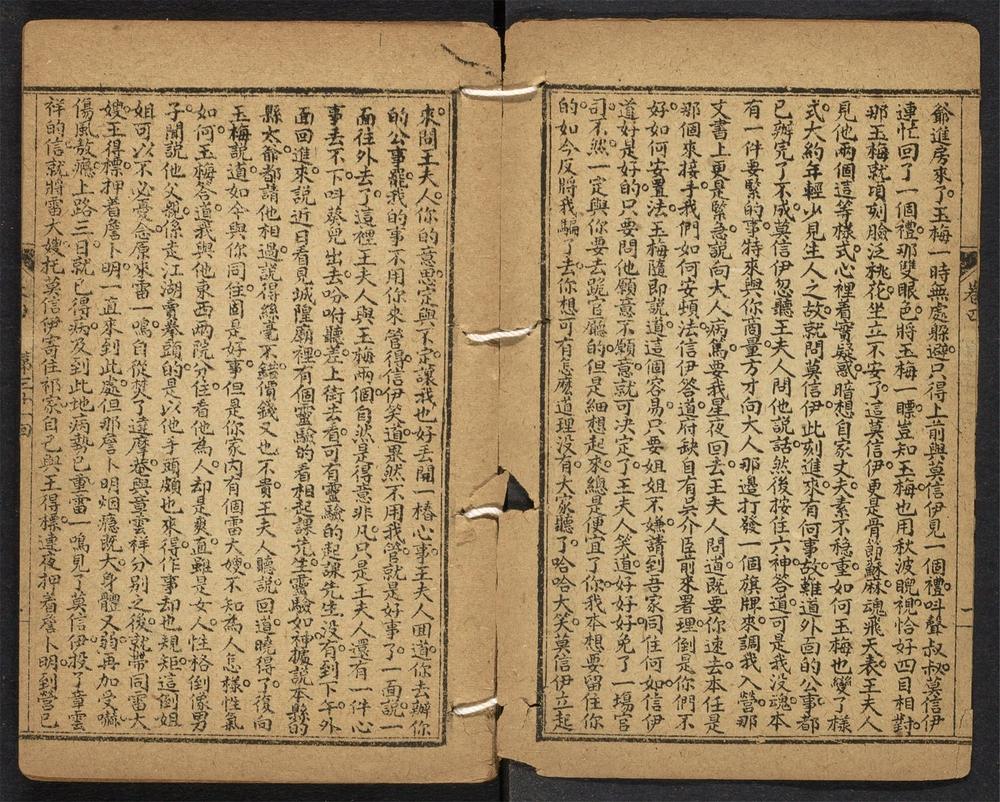 爺進房來了玉梅一時無處躲避只得上前與莫信伊見一個禮叫聲叔叔莫信伊
連忙回了一個禮那雙眼色將玉梅一瞟豈知玉梅也用秋波睨視恰好四目相對
那玉梅就頃刻臉泛桃花坐立不安了這莫信伊更是骨節酥麻魂飛天表王夫人
見他兩個這等樣式心裡看實疑惑暗想自家丈夫素不穩重如何玉梅也變了樣
式大約年輕少見生人之故就問莫信伊此刻進來有何事故難道外面的公事都
已辦完了不成莫信伊忽聽王夫人問他說話然後按住六神答道可是我沒魂本
有一件要緊的事特來與你商量方才向大人那邊打發一個旗牌來調我入營那
文書上更是緊急說向大人病篤要我星夜回去王夫人問道既要你速去本任是
那個來接手我們如何安頓法信伊答道府缺自有吳介臣前來署理倒是你們不
好如何安置法玉梅隨即說道這個容易只要姐姐不嫌請到吾家同住何如信伊
道好是好的只要問他願意不願意就可決定了王夫人笑道好好好免了一場官
司不然一定與你要去跪官廳的但是細想起來總是便宜了你我本想要留住你
的如今反將我騙了去你想可有怎麼道理沒有大家聽了哈哈大笑莫信伊立起
卷四
來問王夫人你的意思定與不定讓我也好丟開一樁心事王夫人回道你去辦你
的公事罷我的事不用你來管得信伊笑道果然不用我管就是好事了一面說一
面往外去了這裡王夫人與玉梅兩個自然是得意非凡只是王夫人還有一件心
事去不下叫葵兒出去吩咐聽差上街去看可有靈驗的起課先生沒有到下午外
面回進來說近日看見城隍廟裡有個靈驗的看相起課先生靈驗如神據說本縣的
縣太爺都請他相過說得絲毫不錯價錢又也不貴王夫人聽說回道曉得了後向
玉梅說道如今與你同住固是好事但是你家內有個雷大嫂不知為人怎樣性氣
如何玉梅答道我與他東西兩院分住看他為人却是爽直雖是女人性格倒像男
子聞說他父親係走江湖賣拳頭的是以他手頭頗也來得作事却也規矩這倒姐
姐可以不必憂念原來雷一鳴自從焚了達摩卷與章雲祥分別之後就帶同雷大
嫂王得標押着詹卜明一直來到此處但那詹卜明烟癮既大身體又弱再加受嚇
傷風熬癮上路三日就已得病及到此地病勢已重雷一鳴見了莫信伊投了章雲
祥的信就將雷大嫂托莫信伊寄住祁家自己與王得標連夜押着詹卜明到營已